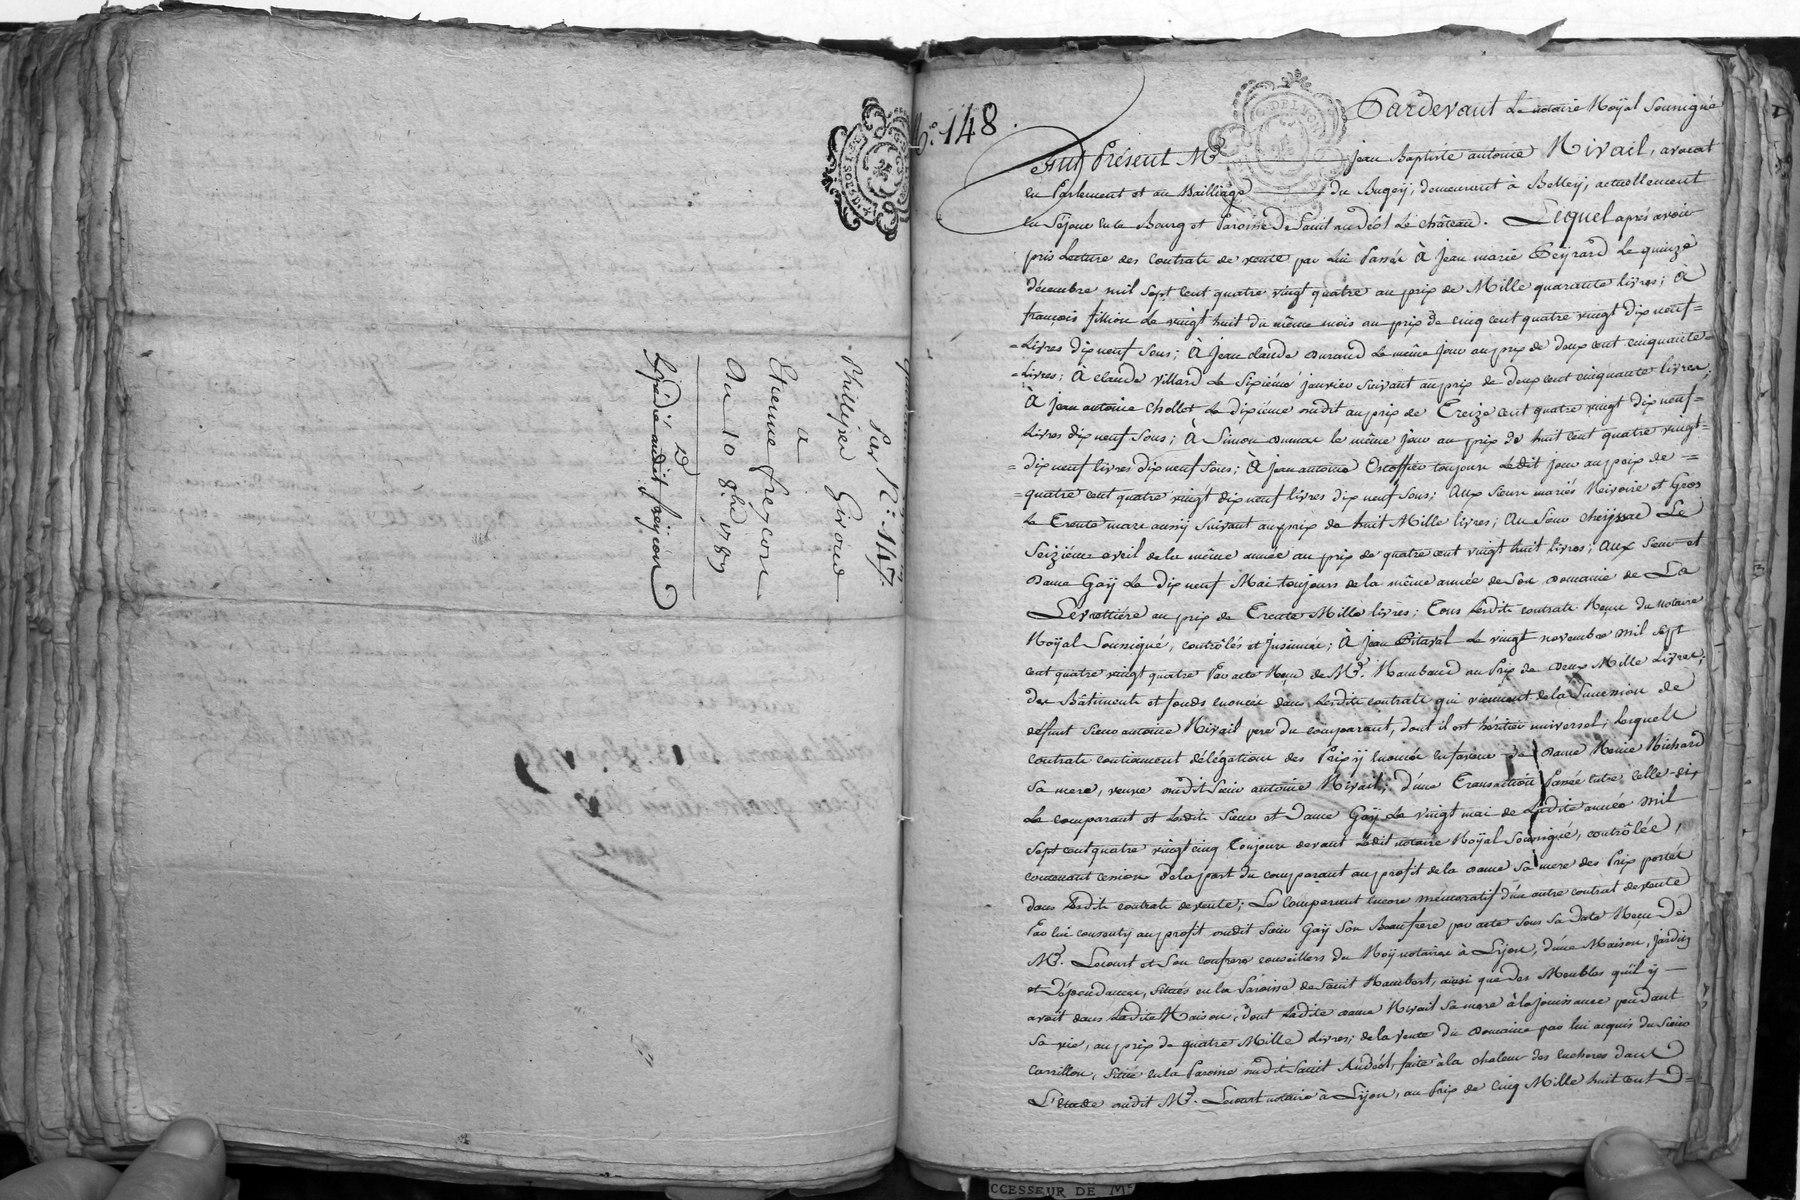 N.º 148.
Par N.º 147.
Phillipe Giroud
a
Etienne freycon
Du 10 8bre 1789
Expédié audit freycon
Pardevant Le notaire Roÿal Soussigné
fut Présent Mre Jean Baptiste antoine Rivail, avocat
en Parlement et au Bailliage du Bugeÿ, demeurant à Belleÿ, actuellement
en Séjour en ce Bourg et Paroisse De Saint andéol Le château. Lequel aprés avoir
pris Lecture des contrats de vente par Lui Passés à Jean marie Peÿrard Le quinze
décembre mil Sept Cent quatre vingt quatre au prix de Mille quarante livres; à
françois fillion Le vingt huit du même mois au prix de cinq cent quatre vingt dix neuf=
=Livres dix neuf Sous; à Jean claude Durand Le même Jour au prix de deux cent cinquante=
=Livres; à claude villard Le Sixiéme janvier Suivant au prix de deux cent cinquante livres;
à Jean antoine chollet Le dixiéme dudit au prix de Treize cent quatre vingt dix neuf=
Livres dix neuf Sous; à Simon le même jour au prix de huit cent quatre vingt=
=dix neuf livres dix neuf Sous; à Jean antoine Escoffier toujours Ledit jour au prix de =
=quatre cent quatre vingt dix neuf livres dix neuf Sous; aux Sieur mariés Rivoire et Gros
Le Trente mars aussÿ Suivant au prix de huit Mille livres; au Sieur cheÿssac Le
Seiziéme avril de la même année au prix de quatre cent vingt huit livres; aux Sieur et
Dame Gaÿ Le dix neuf Mai toujours de la même année de Son Domaine de La
Levrottiére au prix de Trente Mille livres; Tous Lesdits contrats Reçus du notaire
Roÿal Soussigné, contrôlés et Insinués; à Jean Pitaval Le vingt novembre mil Sept
cent quatre vingt quatre Par acte Reçu de Me. Rambaud au Prix de deux Mille Livres;
des Bâtiments et fonds énoncés dans Lesdits contrats qui viennent de la Succession de
défunt Sieur antoine Rivail pere du comparant, dont il est héritier universel; Lesquels
contrats contiennent délégations des Prix ÿ énoncés en faveur de Dame Reine Richard
Sa mere, veuve dudit Sieur antoine Rivail; d'une Transaction Passée entre celle-ci,
Le comparant et Lesdits Sieur et Dame Gaÿ Le vingt mai de Ladite année mil
Sept cent quatre vingt cinq Toujours devant Ledit notaire Roÿal Soussigné, contrôlée,
contenant cession de la part du comparant au profit de la dame Sa mere des Prix portés
dans Lesdits contrats de vente; Le comparant encore mémoratif d'un autre contrat de vente
Par lui consenty au profit dudit Sieur Gaÿ Son Beaufrere par acte Sous Sa date Reçu De
Me. Lecourt et Son confrere conseillers du Roÿ notaires à Lÿon, d'une Maison, Jardin
et Dépendances, Situés en la Paroisse de Saint Rambert, ainsi que des Meubles qu'il ÿ —
avoit dans Ladite Maison, dont Ladite dame Rivail Sa mere à la jouissance pendant
Sa vie, au prix de quatre Mille Livres; de la vente du Domaine par lui acquis du Sieur
Carrillon, Situé en la Paroisse dudit Saint Andéol, faite à la chaleur des encheres dans
L'étude dudit Me. Lecourt notaire à Lÿon, au Prix de Cinq Mille huit cent D=
CCESSEUR DE Me